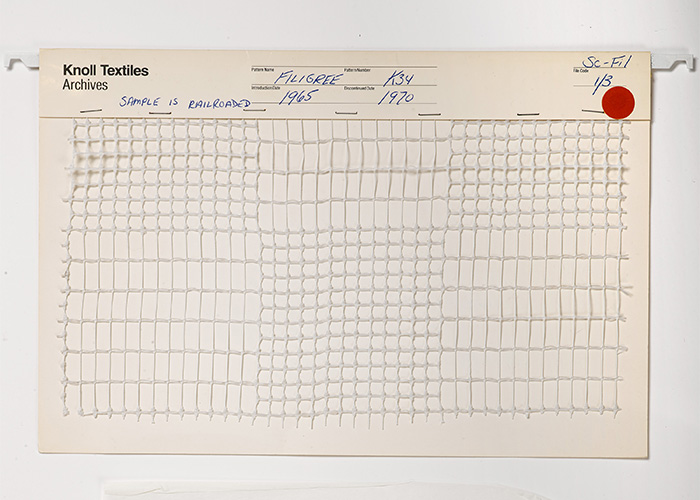 Knoll Textiles
Archives
SAMPLE IS RAILROADED
Pattern Name
FILIGREE
Pattern Number
K34
Introduction Date
1965
Discontinued Date
1970
Sc-Fil
File Code
1/3